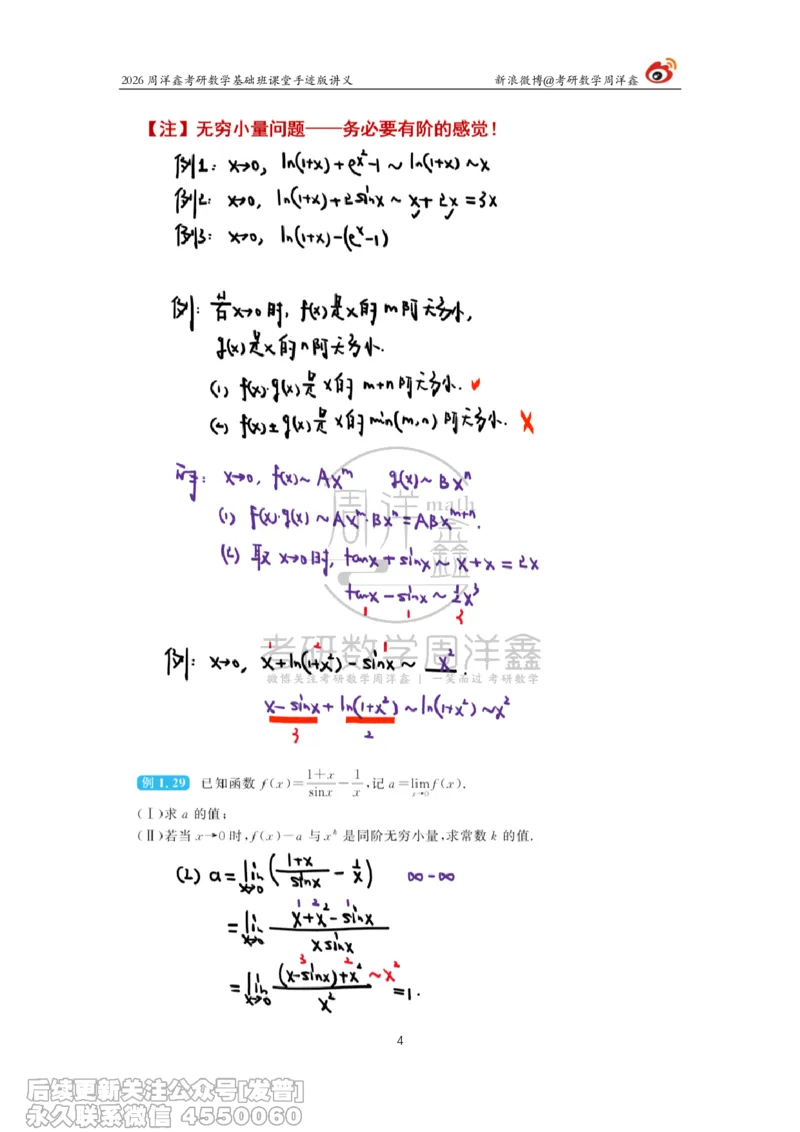 2026 周洋鑫考研数学基础班课堂手迹版讲义 新浪微博@考研数学周洋鑫
【注】无穷小量问题——务必要有阶的感觉!
例1: x→0, ln(1+x)+e^{x²}-1 ~ ln(1+x) ~ x
例2: x→0, ln(1+x)+2sinx ~ x+2x=3x
例3: x→0, ln(1+x)-(e^x-1)
例: 若x→0时, f(x)是x的m阶无穷小,
g(x)是x的n阶无穷小.
(1) f(x)·g(x)是x的 m+n阶无穷小. ✓
(2) f(x)±g(x)是x的min(m,n)阶无穷小. ✗
解: x→0, f(x)~Ax^m g(x)~Bx^n
(1) f(x)·g(x) ~ Ax^m·Bx^n = ABx^{m+n}.
(2) 取 x→0时, tanx+sinx ~ x+x=2x
tanx-sinx ~ ½x³
1 1 3
1 2 1
例: x→0, x+ln(1+x²)-sinx ~ x².
x-sinx+ln(1+x²) ~ ln(1+x²) ~ x²
3 2
周洋鑫 math
考研数学周洋鑫
微博关注考研数学周洋鑫 | 一笑而过 考研数学
例 1.29 已知函数 f(x)=(1+x)/sinx-1/x,记 a=lim_{x→0} f(x).
(Ⅰ)求 a 的值;
(Ⅱ)若当 x→0 时,f(x)-a 与 x^k 是同阶无穷小量,求常数 k 的值.
(2) a=lim_{x→0}((1+x)/sinx - 1/x) ∞-∞
1 2 1
=lim_{x→0} (x+x²-sinx)/(x sinx)
3 2
=lim_{x→0} ((x-sinx)+x²)/x² ~x² =1.
4
后续更新关注公众号[发普]
永久联系微信 4550060